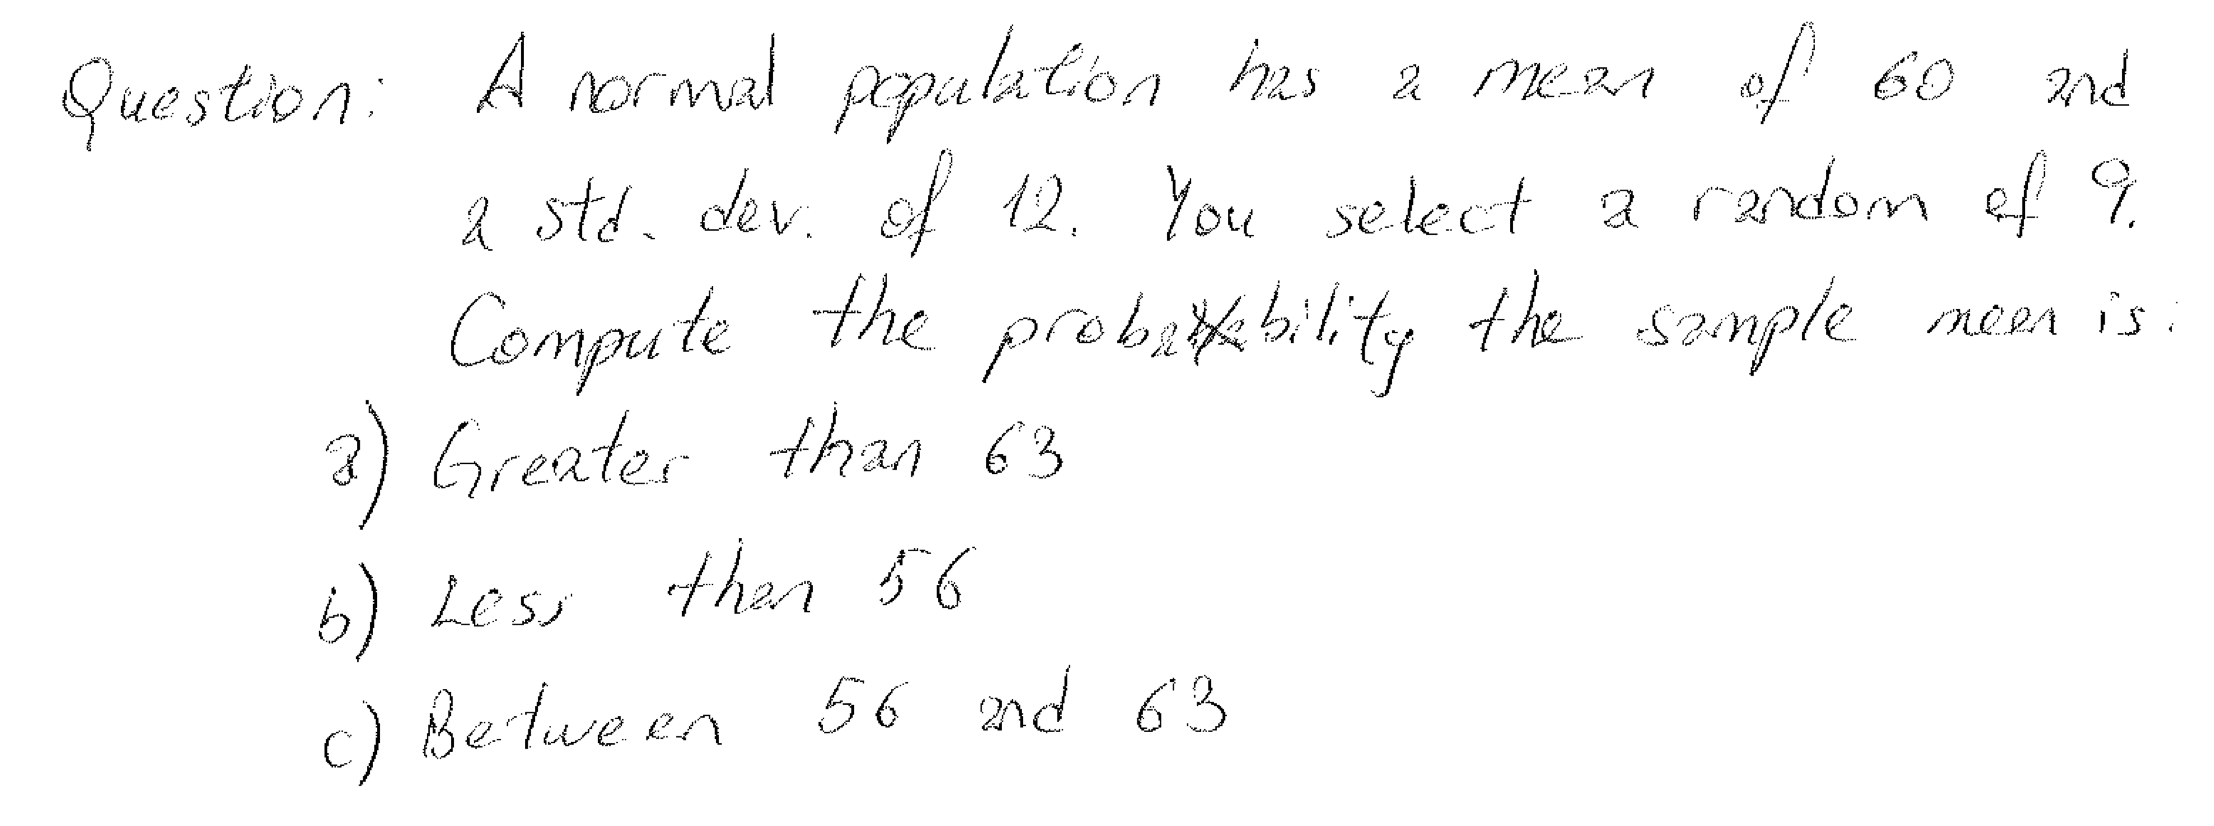 Question: A normal population has a mean of 60 and
a std. dev. of 12. You select a random of 9.
Compute the probability the sample mean is:
a) Greater than 63
b) Less than 56
c) Between 56 and 63